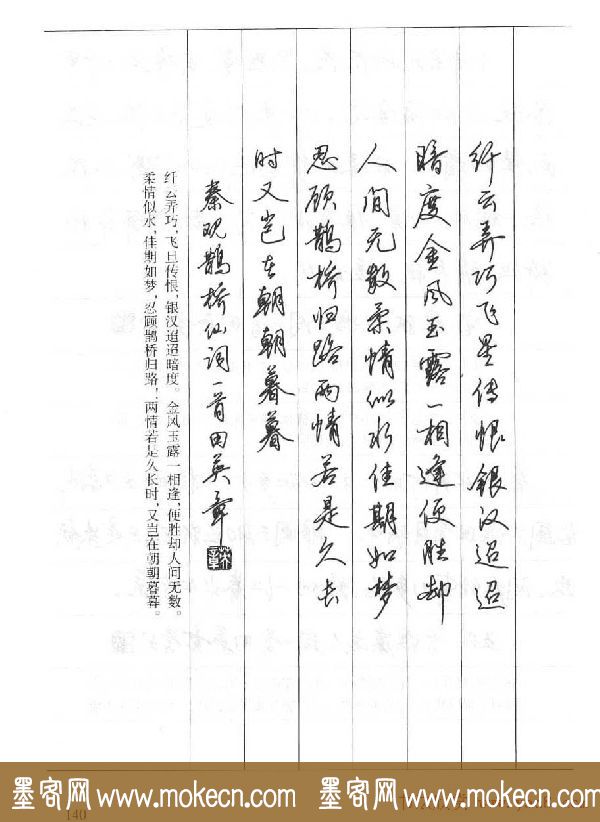 纤云弄巧飞星传恨银汉迢迢
暗度金风玉露一相逢便胜却
人间无数柔情似水佳期如梦
忍顾鹊桥归路两情若是久长
时又岂在朝朝暮暮
秦观鹊桥仙词一首田英章
纤云弄巧，飞星传恨，银汉迢迢暗度。金风玉露一相逢，便胜却人间无数。
柔情似水，佳期如梦，忍顾鹊桥归路。两情若是久长时，又岂在朝朝暮暮。
墨客网www.mokecn.com 墨客网www.mokecn.com
140